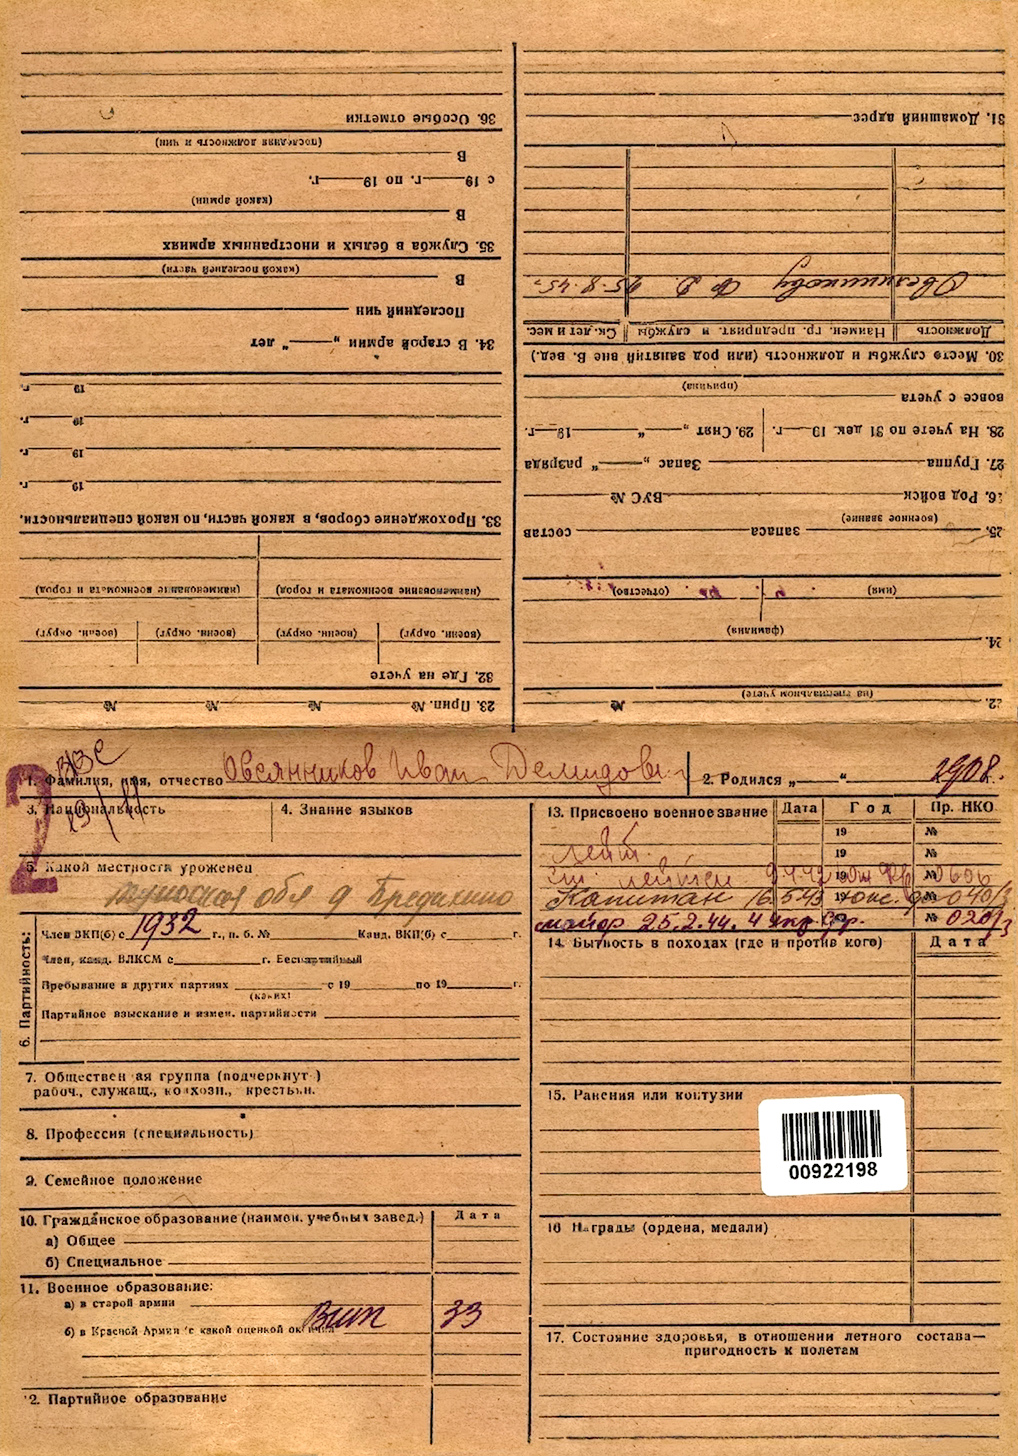 36. Особые отметки
(последняя должность и чин)
В
с 19 г. по 19 г.
(какой армии)
В
35. Служба в белых и иностранных армиях
(какой последней части)
В
Последний чин
34. В старой армии „ “ лет
19 г.
19 г.
19 г.
19 г.
33. Прохождение сборов, в какой части, по какой специальности.
(наименование военкомата и город) (наименование военкомата и город)
(воен. округ) (воен. округ) (воен. округ) (воен. округ)
32. Где на учете
23. Прип. № № № №
31. Домашний адрес
Овсянникову Ф. Д. 25.8.45г.
Должность Наимен. гр. предприят. и службы Ск. лет и мес.
30. Место службы и должность (или род занятий вне В. вед.)
(причина)
вовсе с учета
28. На учете по 31 дек. 19 г. 29. Снят „ “ 19 г.
27. Группа Запас „ “ разряда
26. Род войск ВУС №
(военное звание)
25. запаса состав
(имя) (отчество)
(фамилия)
24.
(на специальном учете)
22. №
2
ВВС
1. Фамилия, имя, отчество Овсянников Иван Демидович 2. Родился „ “ 1908 г.
3. Национальность 4. Знание языков
5. Какой местности уроженец
обл д Бредихино
6. Партийность:
Член ВКП(б) с 1932 г., п. б. № Канд. ВКП(б) с г.
Член, канд. ВЛКСМ с г. Беспартийный
Пребывание в других партиях с 19 по 19 г.
(каких)
Партийное взыскание и измен. партийности
7. Обществен ая группа (подчеркнут )
рабоч., служащ., колхозн., крестьян.
8. Профессия (специальность)
9. Семейное положение
10. Гражданское образование (наимен. учебных завед.) Дата
а) Общее
б) Специальное
11. Военное образование:
а) в старой армии
б) в Красной Армии (с какой оценкой окончил 33
2. Партийное образование
13. Присвоено военное звание Дата Год Пр. НКО
19 №
лейт. 19 №
ст. лейтен 19 № 0606
Капитан 16.5.43 №
майор 25.2.44. 4 укр фр. №
14. Бытность в походах (где и против кого) Дата
15. Ранения или контузии
00922198
16 Награды (ордена, медали)
17. Состояние здоровья, в отношении летного состава—
пригодность к полетам